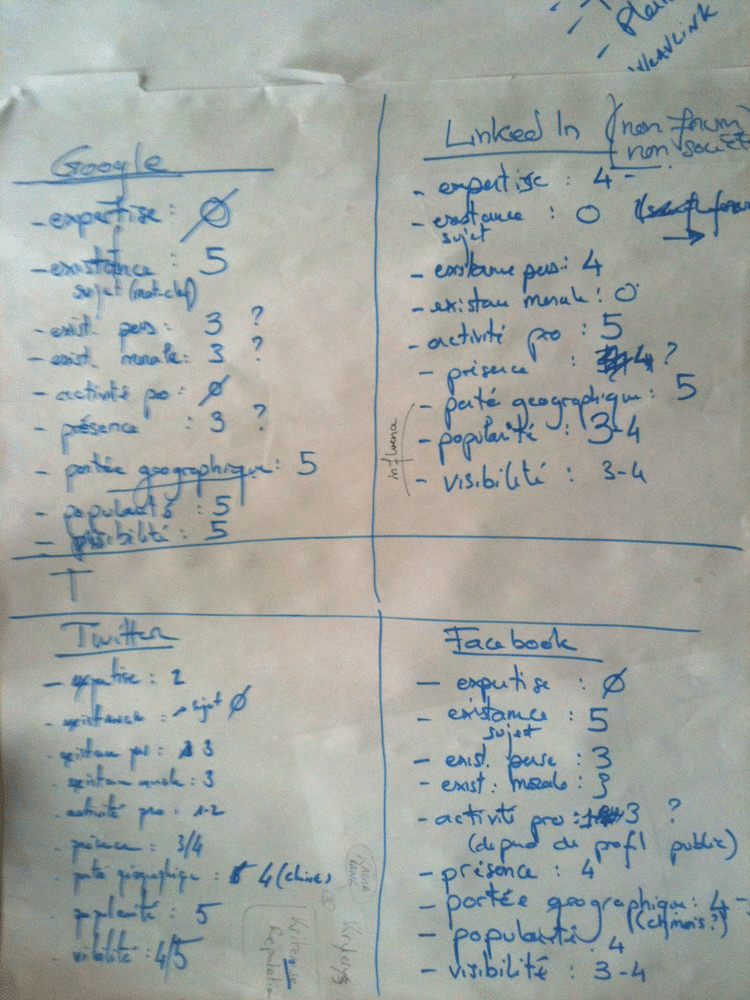 Plan
Google
- expertise : Ø
- existance : 5
sujet (mot-clef)
- exist. pers : 3 ?
- exist. morale : 3 ?
- activité pro : Ø
- présence : 3 ?
- portée geographique : 5
- popularité : 5
- visibilité : 5
Linked In (non forum
non société
- expertise : 4 -
- existance : 0
sujet
- existance pers : 4
- existan morale : 0
- activité pro : 5
- présence : 4 ?
- porté geographique : 5
- popularité : 3-4
- visibilité : 3-4
influence
T
Twitter
- expertise : 2
- existance : sujet Ø
- existan pers : 3
- existan morale : 3
- activité pro : 1-2
- présence : 3/4
- porté géographique : 4 (chine)
- popularité : 5
- visibilité : 4/5
Facebook
- expertise : Ø
- existance : 5
sujet
- exist. perse : 3
- exist. morale : 3
- activité pro : 3 ?
(depend du profl public)
- présence : 4
- portée geographique : 4 -
(chinois ?)
- popularité : 4
- visibilité : 3-4